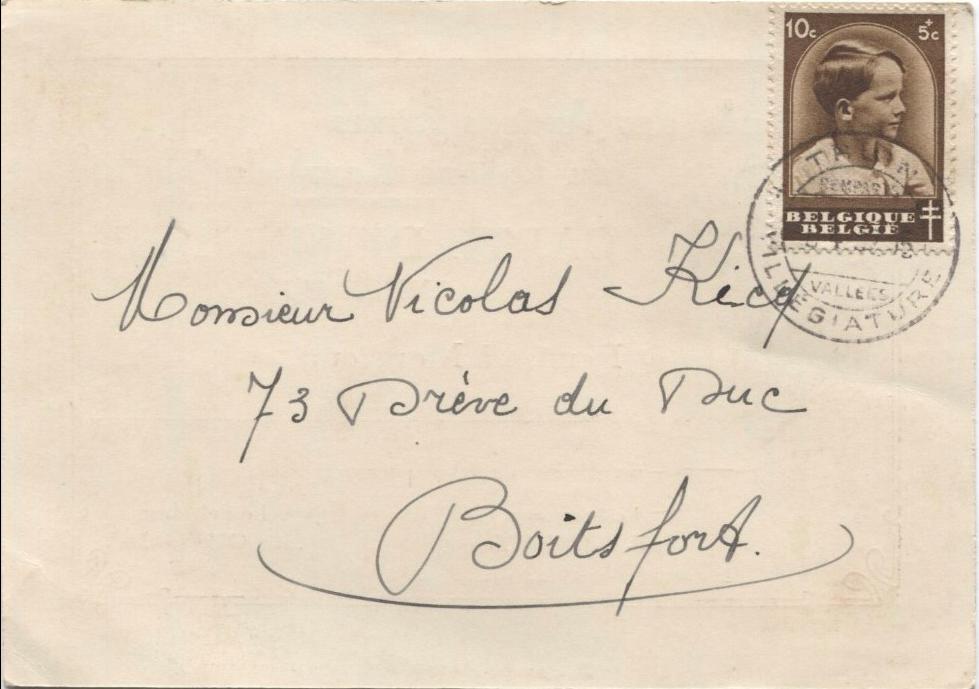 10c + 5c
BELGIQUE
BELGIË
VALLEES
VILLEGIATURE
Monsieur Nicolas Kicq
73 Drève du Duc
Boitsfort.